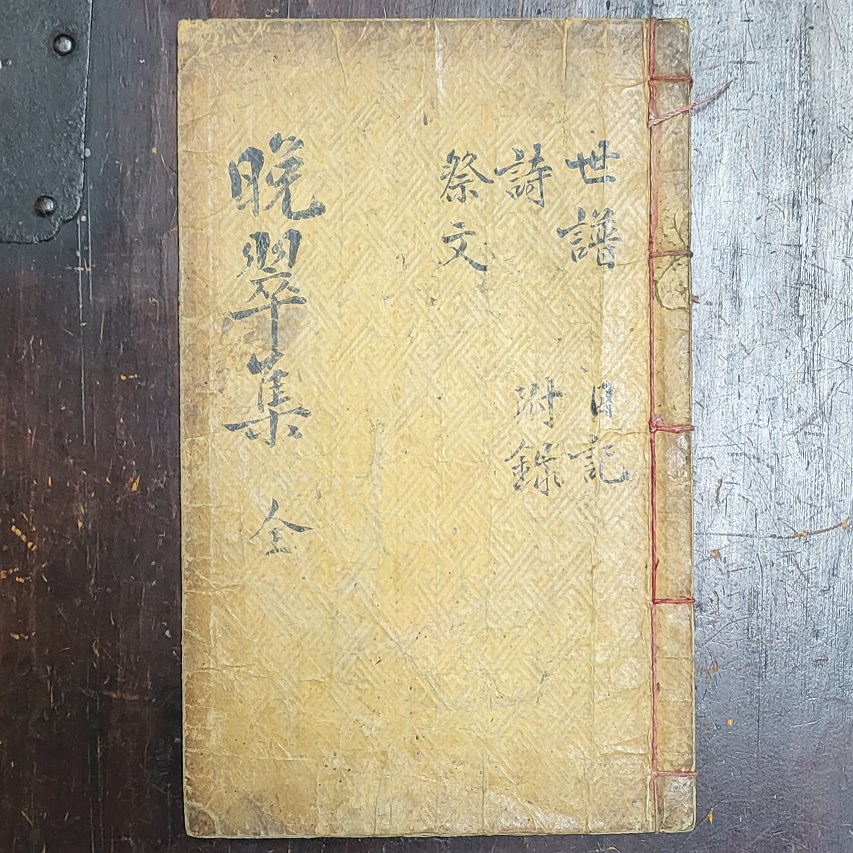 世譜 日記
詩 附錄
祭文
晩翠集 全